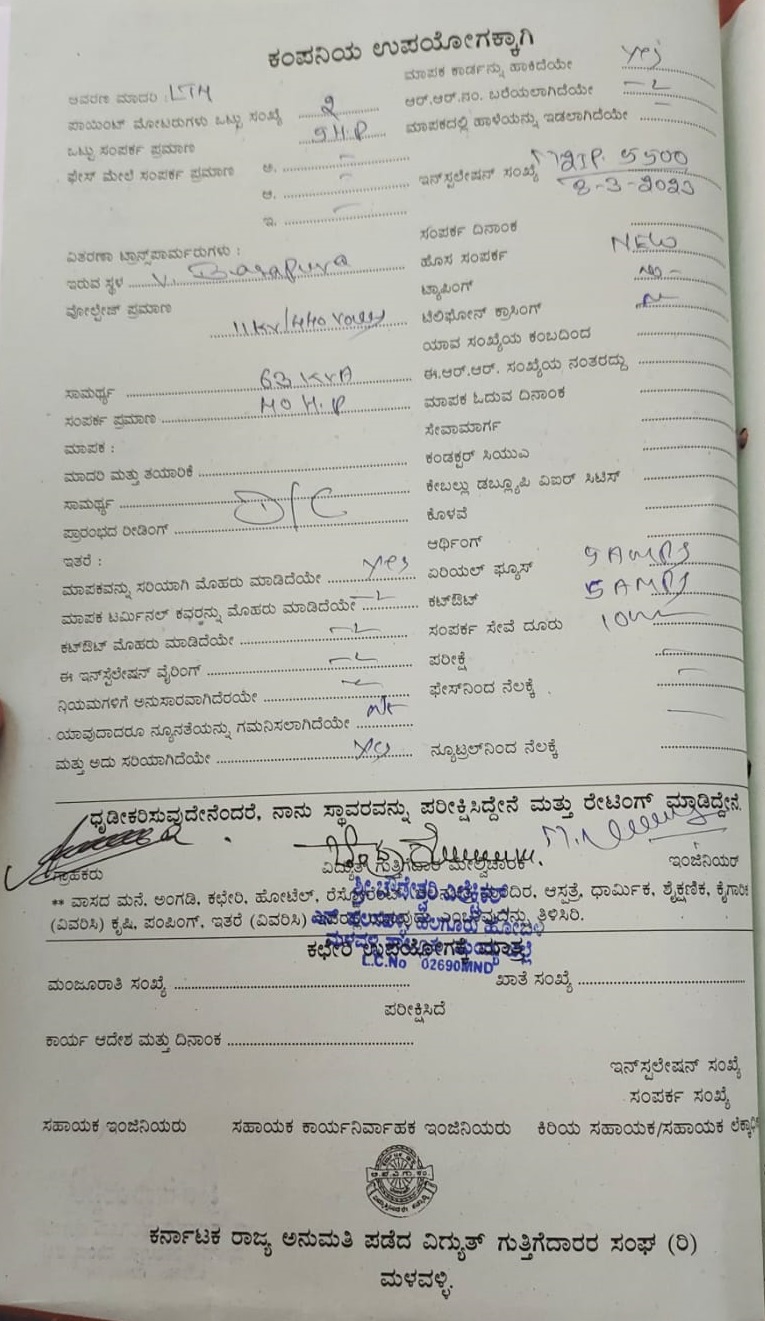 ಕಂಪನಿಯ ಉಪಯೋಗಕ್ಕಾಗಿ
ಆವರಣ ಮಾದರಿ : LTM
ಪಾಯಿಂಟ್ ಮೋಟರುಗಳು ಒಟ್ಟು ಸಂಖ್ಯೆ 2
ಒಟ್ಟು ಸಂಪರ್ಕ ಪ್ರಮಾಣ 5 H.P
ಫೇಸ್ ಮೇಲೆ ಸಂಪರ್ಕ ಪ್ರಮಾಣ ಅ. –
ಆ. –
ಇ. –
ವಿತರಣಾ ಟ್ರಾನ್ಸ್‌ಪಾರ್ಮರುಗಳು :
ಇರುವ ಸ್ಥಳ V. Basapura
ವೋಲ್ಟೇಜ್ ಪ್ರಮಾಣ
11KV/440 Volts
ಸಾಮರ್ಥ್ಯ 63 KVA
ಸಂಪರ್ಕ ಪ್ರಮಾಣ 40 H.P
ಮಾಪಕ :
ಮಾದರಿ ಮತ್ತು ತಯಾರಿಕೆ
ಸಾಮರ್ಥ್ಯ
ಪ್ರಾರಂಭದ ರೀಡಿಂಗ್ D/C
ಇತರೆ :
ಮಾಪಕವನ್ನು ಸರಿಯಾಗಿ ಮೊಹರು ಮಾಡಿದೆಯೇ yes
ಮಾಪಕ ಟರ್ಮಿನಲ್ ಕವರನ್ನು ಮೊಹರು ಮಾಡಿದೆಯೇ
ಕಟ್‌ಔಟ್ ಮೊಹರು ಮಾಡಿದೆಯೇ
ಈ ಇನ್‌ಸ್ಟೆಲೇಷನ್ ವೈರಿಂಗ್
ನಿಯಮಗಳಿಗೆ ಅನುಸಾರವಾಗಿದೆರಯೇ
ಯಾವುದಾದರೂ ನ್ಯೂನತೆಯನ್ನು ಗಮನಿಸಲಾಗಿದೆಯೇ
ಮತ್ತು ಅದು ಸರಿಯಾಗಿದೆಯೇ yes
ಮಾಪಕ ಕಾರ್ಡನ್ನು ಹಾಕಿದೆಯೇ yes
ಆರ್.ಆರ್.ನಂ. ಬರೆಯಲಾಗಿದೆಯೇ
ಮಾಪಕದಲ್ಲಿ ಹಾಳೆಯನ್ನು ಇಡಲಾಗಿದೆಯೇ –
ಇನ್‌ಸ್ಟಲೇಷನ್ ಸಂಖ್ಯೆ 5500
8-3-2023
ಸಂಪರ್ಕ ದಿನಾಂಕ
ಹೊಸ ಸಂಪರ್ಕ NEW
ಟ್ಯಾಪಿಂಗ್ No –
ಟೆಲಿಫೋನ್ ಕ್ರಾಸಿಂಗ್
ಯಾವ ಸಂಖ್ಯೆಯ ಕಂಬದಿಂದ
ಈ.ಆರ್.ಆರ್. ಸಂಖ್ಯೆಯ ನಂತರದ್ದು
ಮಾಪಕ ಓದುವ ದಿನಾಂಕ
ಸೇವಾಮಾರ್ಗ
ಕಂಡಕ್ಟರ್ ಸಿಯುವಿ
ಕೇಬಲ್ಲು ಡಬ್ಲ್ಯೂಪಿ ವಿಐರ್ ಸಿಟಿಸ್
ಕೊಳವೆ
ಆರ್ಥಿಂಗ್
ಏರಿಯಲ್ ಫ್ಯೂಸ್ 5 AMPS
ಕಟ್‌ಔಟ್ 5 AMPS
ಸಂಪರ್ಕ ಸೇವೆ ದೂರು
ಪರೀಕ್ಷೆ –
ಫೇಸ್‌ನಿಂದ ನೆಲಕ್ಕೆ –
ನ್ಯೂಟ್ರಲ್‌ನಿಂದ ನೆಲಕ್ಕೆ
ಧೃಡೀಕರಿಸುವುದೇನೆಂದರೆ, ನಾನು ಸ್ಥಾವರವನ್ನು ಪರೀಕ್ಷಿಸಿದ್ದೇನೆ ಮತ್ತು ರೇಟಿಂಗ್ ಮಾಡಿದ್ದೇನೆ.
ಗ್ರಾಹಕರು ವಿದ್ಯುತ್ ಗುತ್ತಿಗೆದಾರ ಮೇಲ್ವಿಚಾರಕ ಇಂಜಿನಿಯರ್
** ವಾಸದ ಮನೆ, ಅಂಗಡಿ, ಕಛೇರಿ, ಹೋಟೆಲ್, ಆಸ್ಪತ್ರೆ, ಧಾರ್ಮಿಕ, ಶೈಕ್ಷಣಿಕ,
(ವಿವರಿಸಿ) ಕೃಷಿ, ಪಂಪಿಂಗ್, ಇತರೆ (ವಿವರಿಸಿ) ಎಂಬುವುದನ್ನು ತಿಳಿಸಿರಿ.
ಕಛೇರಿ ಉಪಯೋಗಕ್ಕೆ ಮಾತ್ರ
L.C.No 02690MND
ಮಂಜೂರಾತಿ ಸಂಖ್ಯೆ ಖಾತೆ ಸಂಖ್ಯೆ
ಪರೀಕ್ಷಿಸಿದೆ
ಕಾರ್ಯ ಆದೇಶ ಮತ್ತು ದಿನಾಂಕ
ಇನ್‌ಸ್ಟಲೇಷನ್ ಸಂಖ್ಯೆ
ಸಂಪರ್ಕ ಸಂಖ್ಯೆ
ಸಹಾಯಕ ಇಂಜಿನಿಯರು ಸಹಾಯಕ ಕಾರ್ಯನಿರ್ವಾಹಕ ಇಂಜಿನಿಯರು ಕಿರಿಯ ಸಹಾಯಕ/ಸಹಾಯಕ
ಕರ್ನಾಟಕ ರಾಜ್ಯ ಅನುಮತಿ ಪಡೆದ ವಿದ್ಯುತ್ ಗುತ್ತಿಗೆದಾರರ ಸಂಘ (ರಿ)
ಮಳವಳ್ಳಿ.